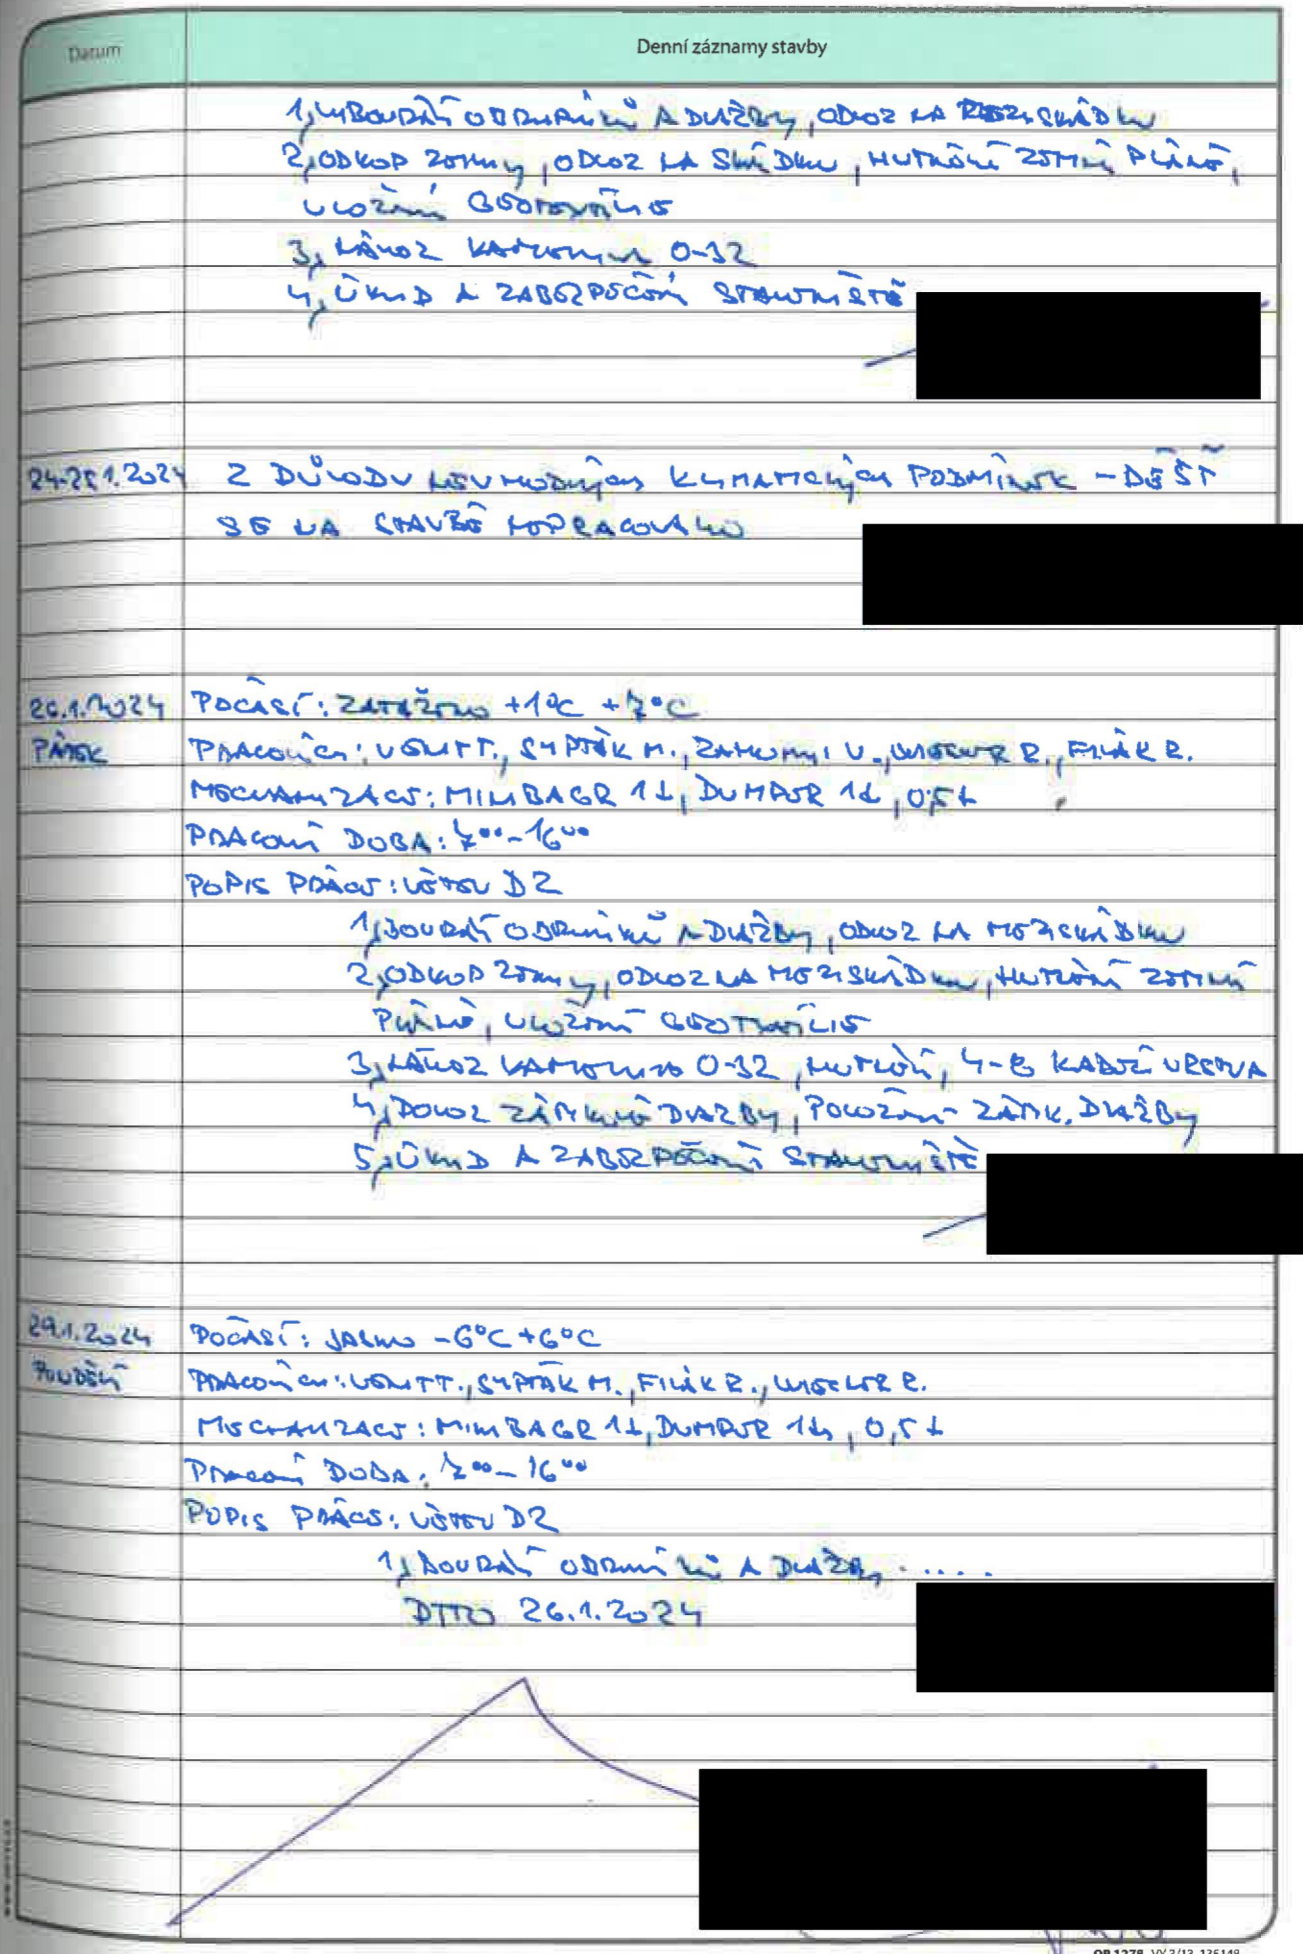 Datum
Denní záznamy stavby
1, VYBOURÁNÍ OBRUBNÍKŮ A DLAŽBY, ODVOZ NA MEZISKLÁDKU
2, ODKOP ZEMINY, ODVOZ NA SKLÁDKU, HUTNĚNÍ ZEMNÍ PLÁNĚ,
ULOŽENÍ GEOTEXTÍLIE
3, NÁVOZ KAMENIVA 0-32
4, ÚKLID A ZABEZPEČENÍ STAVENIŠTĚ
24-25.1.2024 Z DŮVODU NEVHODNÝCH KLIMATICKÝCH PODMÍNEK - DÉŠŤ
SE NA STAVBĚ NEPRACOVALO
26.1.2024 POČASÍ: ZATAŽENO +1°C +7°C
PÁTEK PRACOVNÍCI: , SYPTÁK M., V., R., FILÁK R.
MECHANIZACE: MINIBAGR 1t, DUMPER 1t, 0,5t
PRACOVNÍ DOBA: 7°°-16°°
POPIS PRÁCE: VĚTEV D2
1, BOURÁNÍ OBRUBNÍKŮ A DLAŽBY, ODVOZ NA MEZISKLÁDKU
2, ODKOP ZEMINY, ODVOZ NA MEZISKLÁDKU, HUTNĚNÍ ZEMNÍ
PLÁNĚ, ULOŽENÍ GEOTEXTÍLIE
3, NÁVOZ KAMENIVA 0-32, HUTNĚNÍ, 4-8 KLADECÍ VRSTVA
4, DOVOZ ZÁMKOVÉ DLAŽBY, POLOŽENÍ ZÁMK. DLAŽBY
5, ÚKLID A ZABEZPEČENÍ STAVENIŠTĚ
29.1.2024 POČASÍ: JASNO -6°C +6°C
PONDĚLÍ PRACOVNÍCI: , SYPTÁK M., FILÁK R., R.
MECHANIZACE: MINIBAGR 1t, DUMPER 1t, 0,5t
PRACOVNÍ DOBA: 7°°-16°°
POPIS PRÁCE: VĚTEV D2
1, BOURÁNÍ OBRUBNÍKŮ A DLAŽBY .....
DTTO 26.1.2024